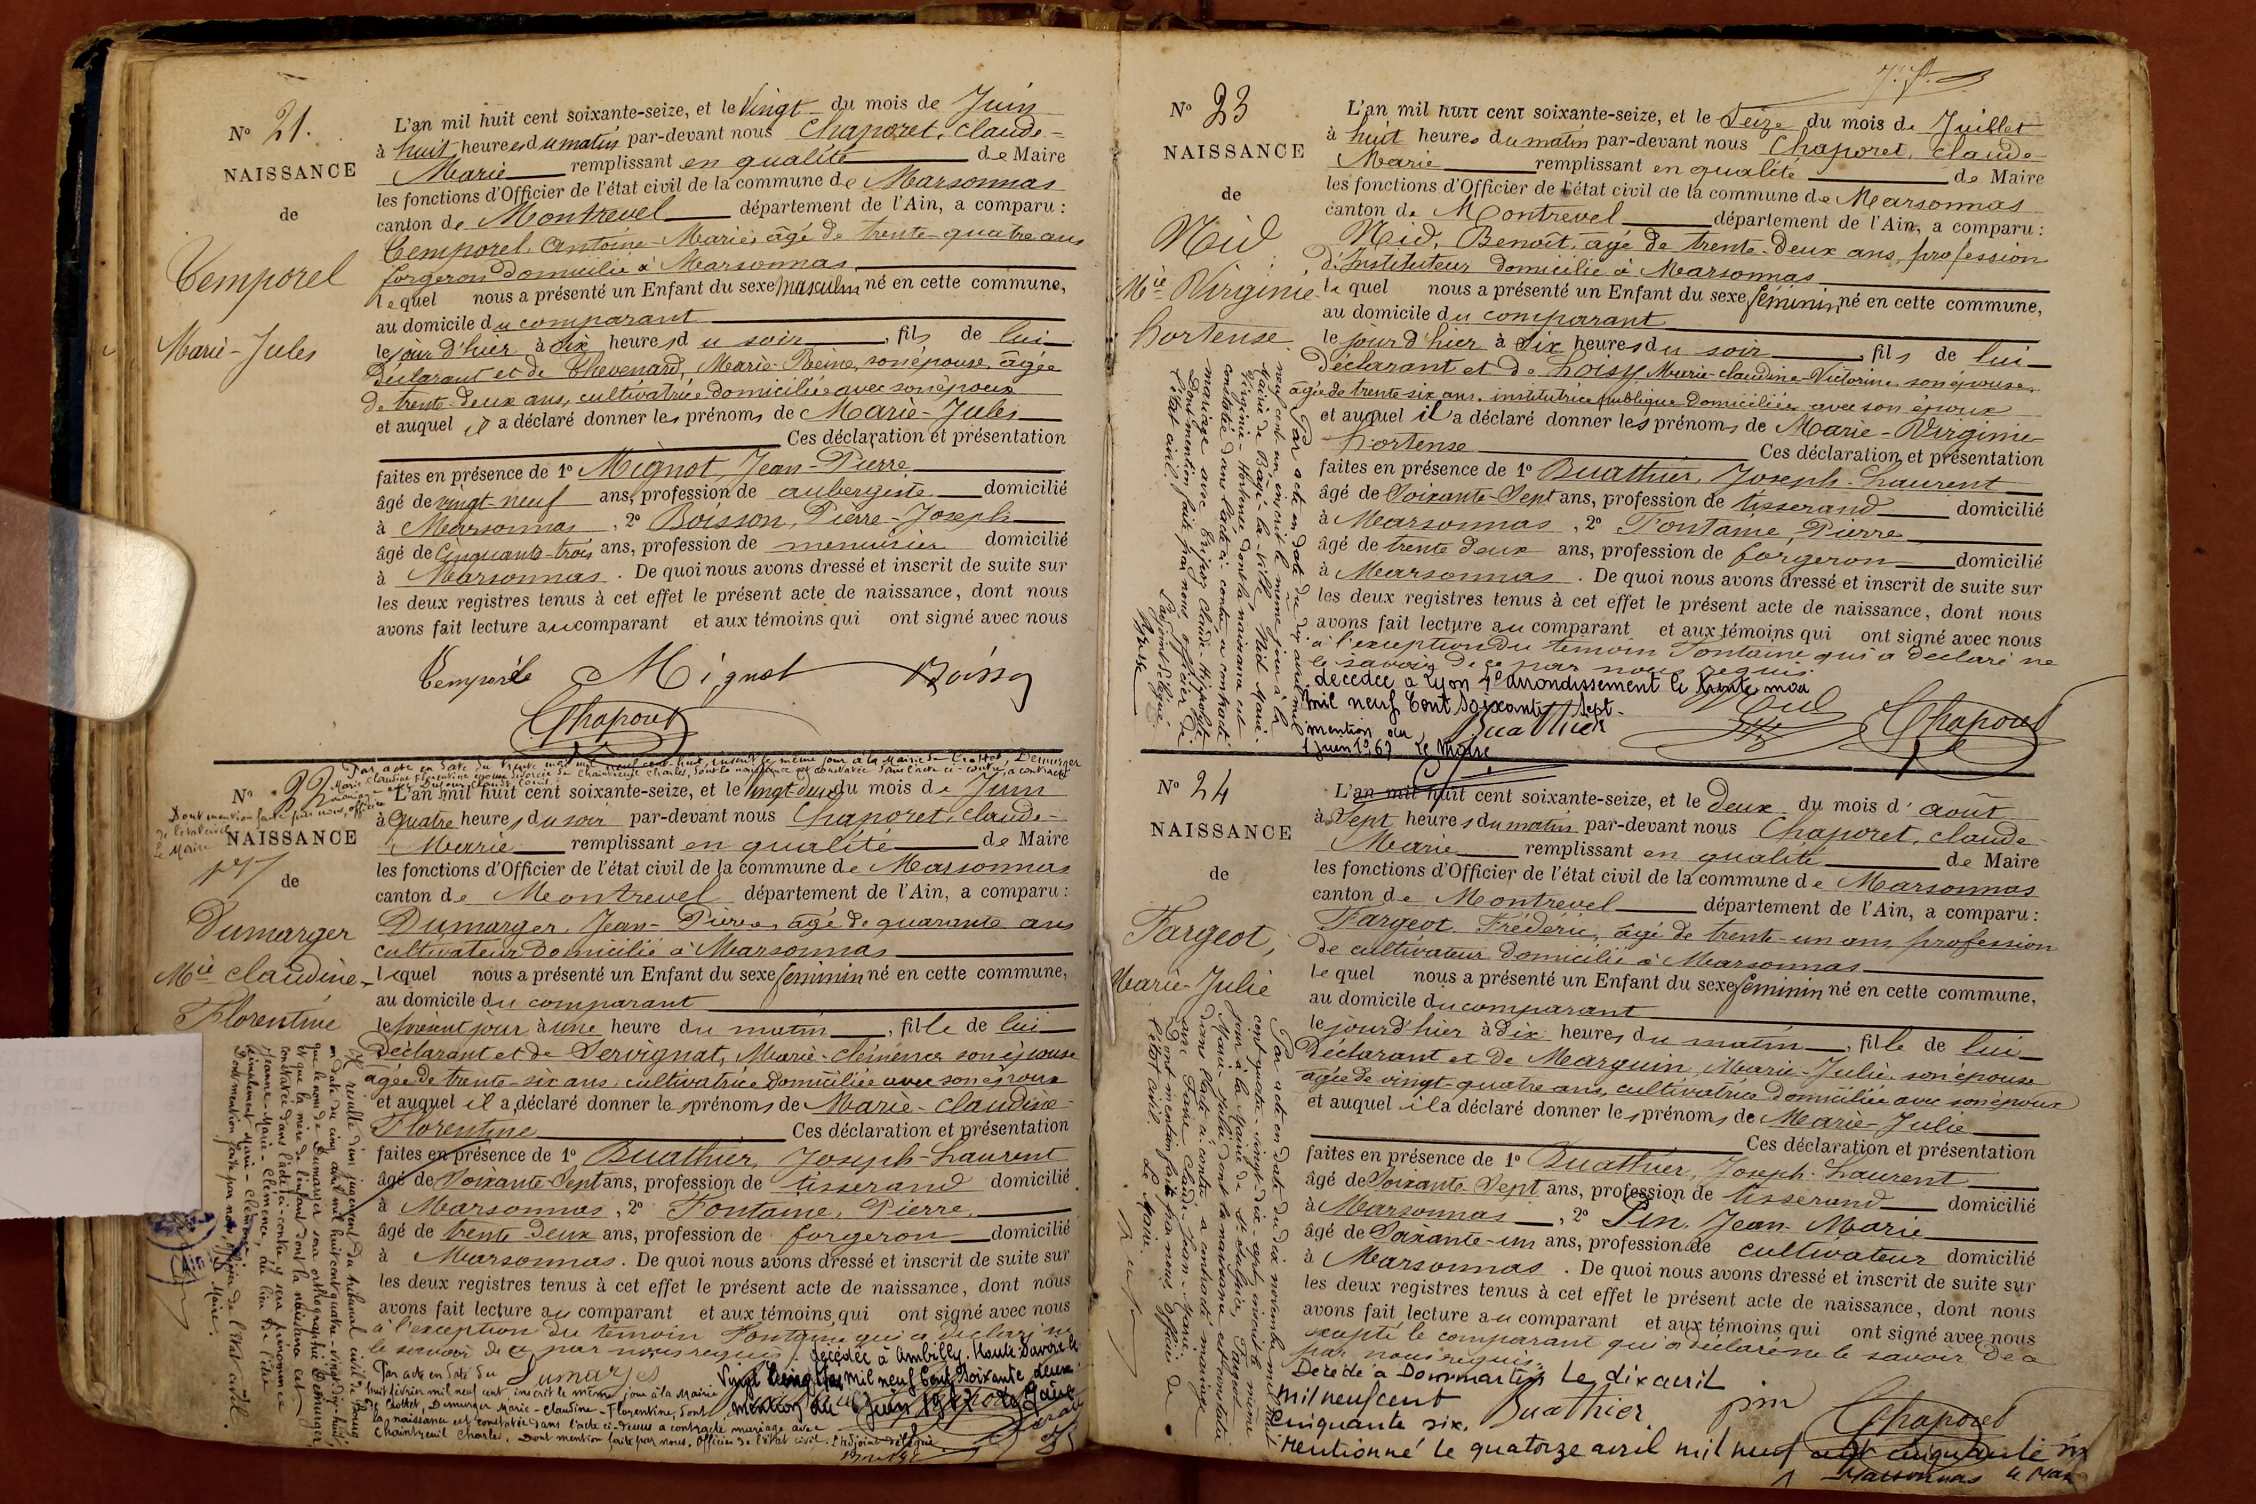 N° 21.
NAISSANCE
de
Temporel
Marie-Jules
L'an mil huit cent soixante-seize, et le vingt du mois de Juin
à huit heures du matin par-devant nous Chaporet, Claude-
Marie remplissant en qualité de Maire
les fonctions d'Officier de l'état civil de la commune de Marsonnas
canton de Montrevel département de l'Ain, a comparu :
Temporel Antoine-Marie, âgé de trente-quatre ans
forgeron domicilié à Marsonnas
lequel nous a présenté un Enfant du sexe masculin né en cette commune,
au domicile du comparant
le jour d'hier à six heures du soir, fils de lui
Déclarant et de Thevenard, Marie-Reine, son épouse, âgée
de trente-deux ans, cultivatrice domiciliée avec son époux
et auquel il a déclaré donner les prénoms de Marie-Jules
Ces déclaration et présentation
faites en présence de 1° Mignot, Jean-Pierre
âgé de vingt-neuf ans, profession de aubergiste domicilié
à Marsonnas, 2° Boisson, Pierre-Joseph
âgé de Cinquante-trois ans, profession de menuisier domicilié
à Marsonnas. De quoi nous avons dressé et inscrit de suite sur
les deux registres tenus à cet effet le présent acte de naissance, dont nous
avons fait lecture au comparant et aux témoins qui ont signé avec nous
Mignot
Chaporet
Par acte en date du trente mai mil neuf cent huit, inscrit le même jour à la Mairie de Crottet, Demurger
Marie Claudine Florentine épouse divorcée de Chaintreuil Charles, dont la naissance est constatée dans l'acte ci-contre, a contracté
mariage avec Dufour Claude
Dont mention faite par nous, officier
de l'état civil
Le Maire
N° 22
NAISSANCE
de
Dumarger
Mie Claudine-
Florentine
L'an mil huit cent soixante-seize, et le vingt-deux du mois de Juin
à quatre heures du soir par-devant nous Chaporet, Claude-
Marie remplissant en qualité de Maire
les fonctions d'Officier de l'état civil de la commune de Marsonnas
canton de Montrevel département de l'Ain, a comparu :
Dumarger, Jean-Pierre, âgé de quarante ans
cultivateur domicilié à Marsonnas
lequel nous a présenté un Enfant du sexe féminin né en cette commune,
au domicile du comparant
le présent jour à une heure du matin, fille de lui
Déclarant et de Servignat, Marie-Clémence son épouse
âgée de trente-six ans, cultivatrice domiciliée avec son époux
et auquel il a déclaré donner les prénoms de Marie-Claudine-
Florentine Ces déclaration et présentation
faites en présence de 1° Buathier, Joseph-Laurent
âgé de Soixante-Sept ans, profession de tisserand domicilié
à Marsonnas, 2° Fontaine, Pierre
âgé de trente deux ans, profession de forgeron domicilié
à Marsonnas. De quoi nous avons dressé et inscrit de suite sur
les deux registres tenus à cet effet le présent acte de naissance, dont nous
avons fait lecture au comparant et aux témoins qui ont signé avec nous
à l'exception du témoin Fontaine qui a déclaré ne
le savoir de ce par nous requis
décédée à Ambilly. Haute Savoie le
Vingt mil neuf Cent Soixante deux
mention du 6 Juin
Il résulte d'un jugement du tribunal civil de Bourg
en date du cinq avril mil huit cent quatre-vingt-dix-huit,
que le nom de Dumarger sera orthographié Demurger
et que la mère de l'enfant dont la naissance est
constatée dans l'acte ci-contre, sera prénommée
Jeanne-Marie-Clémence, au lieu de l'être
simplement Marie-Clémence
Dont mention faite par nous, officier de l'état civil.
Le Maire.
Par acte en date du
huit février mil neuf cent, inscrit le même jour à la Mairie
de Crottet, Demurger Marie-Claudine-Florentine, dont
la naissance est constatée dans l'acte ci-dessus a contracté mariage avec
Chaintreuil Charles. Dont mention faite par nous, Officier de l'état civil. L'adjoint délégué
N° 23
NAISSANCE
de
Nid
Mie Virginie
hortense
L'an mil huit cent soixante-seize, et le Seize du mois de Juillet
à huit heures du matin par-devant nous Chaporet, Claude-
Marie remplissant en qualité de Maire
les fonctions d'Officier de l'état civil de la commune de Marsonnas
canton de Montrevel département de l'Ain, a comparu :
Nid, Benoît, âgé de trente-deux ans, profession
d'Instituteur domicilié à Marsonnas
lequel nous a présenté un Enfant du sexe féminin né en cette commune,
au domicile du comparant
le jour d'hier à Six heures du soir, fils de lui
Déclarant et de Loisy Marie-Claudine-Victorine son épouse,
âgée de trente-six ans, institutrice publique domiciliée avec son époux
et auquel il a déclaré donner les prénoms de Marie-Virginie
hortense Ces déclaration et présentation
faites en présence de 1° Buathier, Joseph-Laurent
âgé de Soixante-Sept ans, profession de tisserand domicilié
à Marsonnas, 2° Fontaine, Pierre
âgé de trente deux ans, profession de forgeron domicilié
à Marsonnas. De quoi nous avons dressé et inscrit de suite sur
les deux registres tenus à cet effet le présent acte de naissance, dont nous
avons fait lecture au comparant et aux témoins qui ont signé avec nous
à l'exception du témoin Fontaine qui a déclaré ne
le savoir de ce par nous requis
décédée à Lyon 4e arrondissement le trente mai
mil neuf Cent Soixante Sept.
mention du
1 Juin 1967 Le Maire
Nid
Buathier
Chaporet
Par acte en date du dix avril mil
neuf cent un, inscrit le même jour à la
Mairie de Bagé-la-Ville, Nid Marie-
Virginie-Hortense, dont la naissance est
constatée dans l'acte ci-contre a contracté
mariage avec Claude-Hippolyte
Dont mention faite par nous, officier de
l'état civil. L'adjoint délégué.
N° 24
NAISSANCE
de
Fargeot,
Marie-Julie
L'an mil huit cent soixante-seize, et le Deux du mois d'août
à Sept heures du matin par-devant nous Chaporet, Claude-
Marie remplissant en qualité de Maire
les fonctions d'Officier de l'état civil de la commune de Marsonnas
canton de Montrevel département de l'Ain, a comparu :
Fargeot Frédéric, âgé de trente-un ans, profession
de cultivateur domicilié à Marsonnas
lequel nous a présenté un Enfant du sexe féminin né en cette commune,
au domicile du comparant
le jour d'hier à Dix heures du matin, fille de lui
Déclarant et de Marguin, Marie-Julie son épouse
âgée de vingt-quatre ans, cultivatrice domiciliée avec son époux
et auquel il a déclaré donner les prénoms de Marie-Julie
Ces déclaration et présentation
faites en présence de 1° Buathier, Joseph-Laurent
âgé de Soixante-Sept ans, profession de tisserand domicilié
à Marsonnas, 2° Pin, Jean-Marie
âgé de Soixante-un ans, profession de cultivateur domicilié
à Marsonnas. De quoi nous avons dressé et inscrit de suite sur
les deux registres tenus à cet effet le présent acte de naissance, dont nous
avons fait lecture au comparant et aux témoins qui ont signé avec nous
excepté le comparant qui a déclaré ne le savoir de ce
par nous requis.
Décédé à Dommartin Le dix avril
mil neuf cent
cinquante six.
Buathier pin Chaporet
Mentionné le quatorze avril mil neuf cent cinquante six
Marsonnas le Maire
Par acte en date du dix novembre mil huit
cent quatre-vingt-dix-sept, inscrit le même
jour à la Mairie de St Sulpice, Fargeot
Marie-Julie dont la naissance est constatée
dans l'acte ci-contre a contracté mariage
avec Favre Claude-Jean-Marie.
Dont mention faite par nous, officier de
l'état civil. Le Maire.